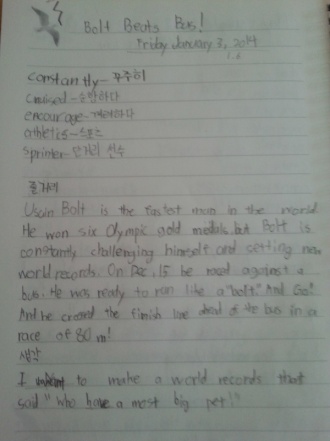 Bolt Beats Bus!
Friday January 3, 2014
constantly - 꾸준히
cruised - 순항하다
encourage - 격려하다
athletics - 스포츠
sprinter - 단거리 선수
줄거리
Usain Bolt is the fastest man in the world.
He won six Olympic gold medals, but Bolt is
constantly challenging himself and setting new
world records. On Dec, 15 he raced against a
bus. He was ready to run like a "bolt". And Go!
And he crossed the finish line ahead of the bus in a
race of 80 m!
생각
I want to make a world records that
said "who have a most big pet!"